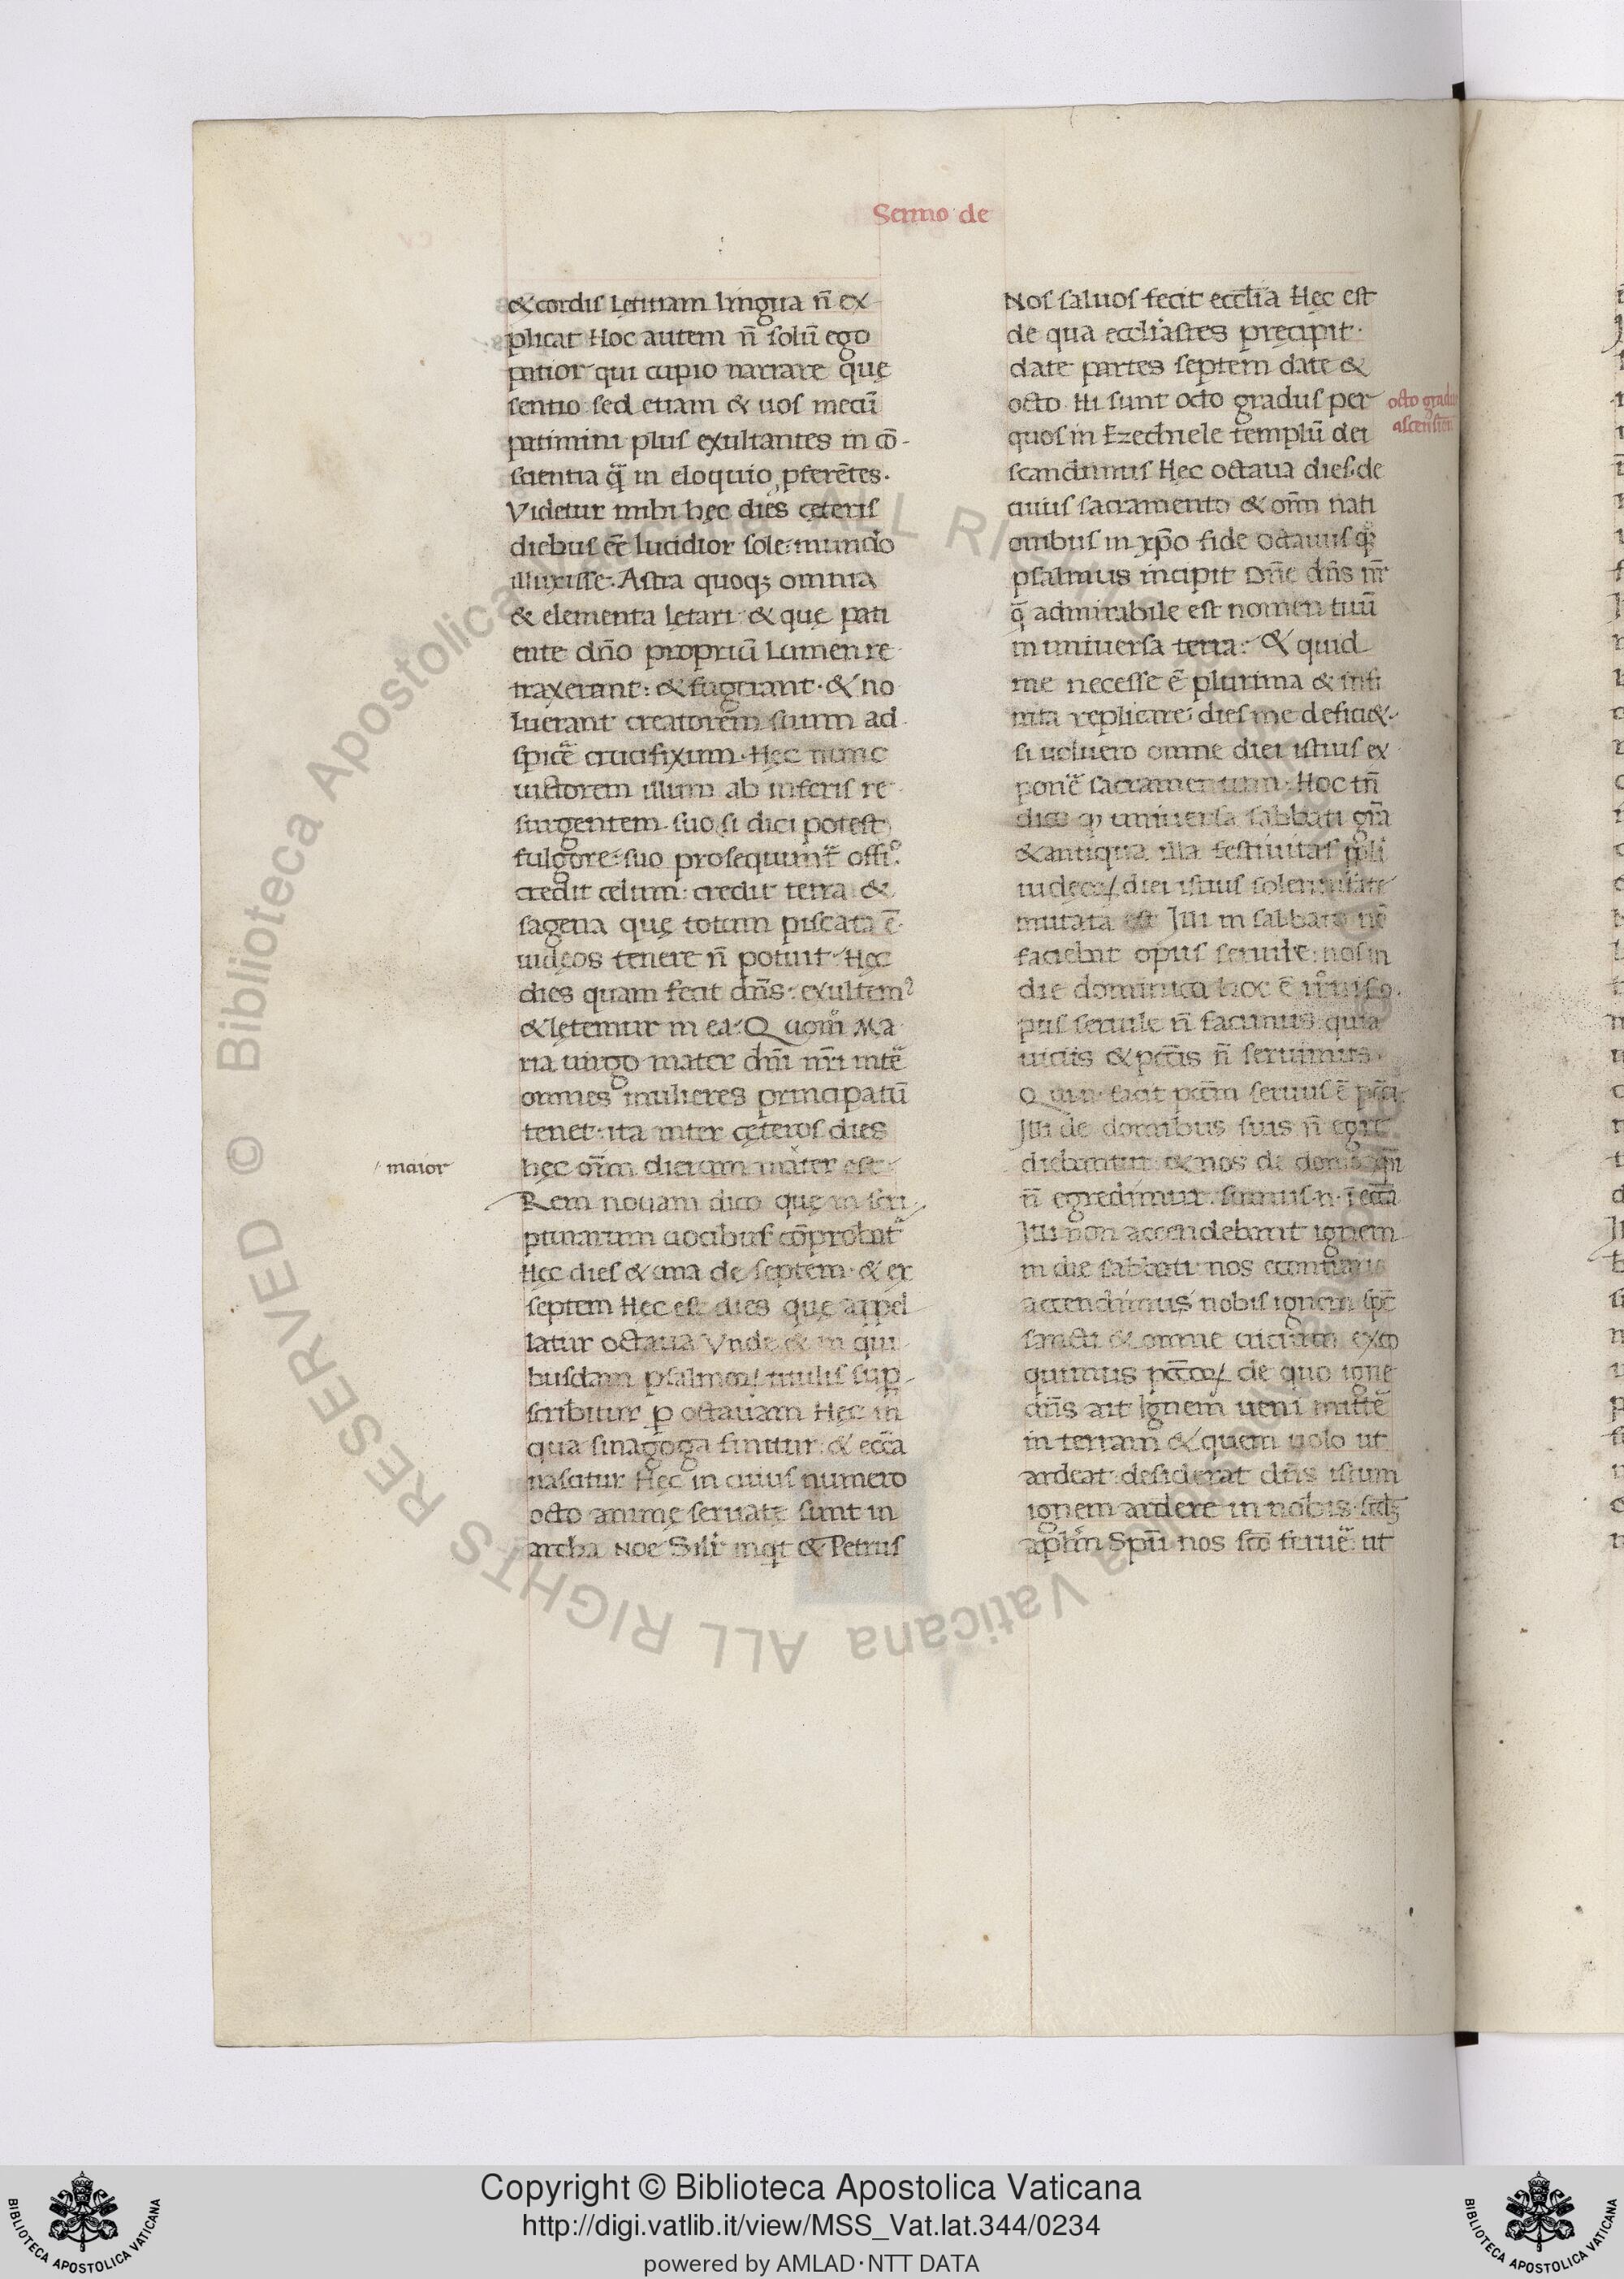 Sermo de
& cordis lętitiam lingua n̄ ex-
plicat Hoc autem n̄ solū ego
patior qui cupio narrare quę
sentio sed etiam & uos mecū
patimini plus exultantes in cō-
scientia q̄ in eloquio pferētes.
Videtur mihi hęc dies cęteris
diebus eē lucidior sole: mundo
illuxisse: Astra quoqꝫ omnia
& elementa lętari: & quę pati
ente dn̄o propriū lumen re-
traxerant: & fugerant. & no
luerant creatorem suum ad
spicē crucifixum. Hęc nunc
uictorem illum ab inferis re-
surgentem. suo si dici potest
fulgore: suo prosequunt̄ offi.º
credit celum: credit terra &
sagena quę totum piscata ē
iudęos tenere n̄ potuit. Hęc
dies quam fecit dn̄s: exultem
& lętemur in ea: Quom̊ Ma
ria uirgo mater dn̄i nr̄i inte
omnes mulieres principatū
tenet: ita inter cęteros dies
hęc om̄m dierum mater est
maior
Rem nouam dico quę in scri
pturarum uocibus cōprobat̄
Hęc dies & una de septem. & ex
septem Hęc est dies quę appel
latur octaua Vnde & in qui
busdam psalmoꝝ titulis sup
scribitur ꝓ octauam Hęc in
qua sinagoga finitur: & ecc̄a
nascitur Hęc in cuius numero
octo animę seruatę sunt in
archa Noe Silr̄ inqt & Petrus
Nos saluos fecit eccl̄ia Hęc est
de qua eccl̄iastes pręcipit.
date partes septem date &
octo Hi sunt octo gradus per
octo gradus
ascension
quos in Ezechiele templū dei
scandimus Hęc octaua dies. de
cuius sacramento & om̄ nati
onibus in xp̄o fide octauus qꝫ
psalmus incipit Dn̄e dn̄s nr̄
q̄ admirabile est nomen tuū
in uniuersa terra: Et quid
me necesse ē plurima & infi
nita replicare: dies me defici&.
si uoluero omne diei istius ex
ponē sacramentum. Hoc tn̄
dico ꝙ uniuersa sabbati gr̄a
& antiqua illa festiuitas ppli
iudęoꝝ diei istius solennitate
mutata est Illi in sabbato nō
faciebnt opus seruile: nos in
die dominica hoc ē
pus seruile n̄ facimus: quia
uiciis & pcc̄is n̄ seruimus.
Qui n. facit pccm̄ seruus ē pcc̄i
Illi de domibus suis n̄ egre
diebantur: & nos de domo
n̄ egredimur. sumus n. ī ecc̄a
Illi non accendebant ignem
in die sabbati: nos
accendimus nobis ignem spc̄
sancti & omne uicium exco
quimus pccōꝝ de quo igne
dn̄s ait Ignem ueni mittē
in terram & quem uolo ut
ardeat: desiderat dn̄s istum
ignem ardere in nobis. sedꝫ
apl̄m Spū nos scō feruē: ut
© Biblioteca Apostolica Vaticana ALL RIGHTS RESERVED
Copyright © Biblioteca Apostolica Vaticana
http://digi.vatlib.it/view/MSS_Vat.lat.344/0234
powered by AMLAD·NTT DATA
BIBLIOTECA APOSTOLICA VATICANA
BIBLIOTECA APOSTOLICA VATICANA